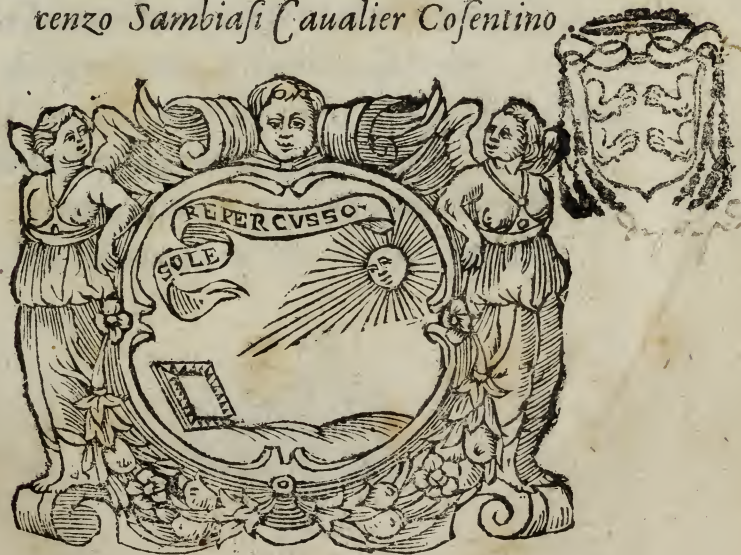 cenzo Sambiaſi Caualier Coſentino
SOLE REPERCVSSO